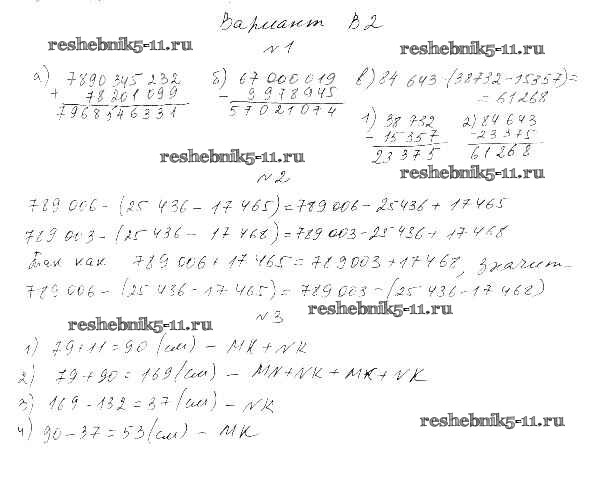 Вариант В2
reshebnik5-11.ru
№1
reshebnik5-11.ru
а) 7890345232 б) 67000019 в) 84 643-(38732-15357)=
+ 78201099 - 9978945 = 61268
7968546331 57021074 1) 38732 2) 84643
- 15357 - 23375
23375 61268
reshebnik5-11.ru
№2
reshebnik5-11.ru
789 006 - (25 436 - 17 465) = 789 006 - 25436 + 17465
789 003 - (25 436 - 17 468) = 789 003 - 25 436 + 17 468
Так как 789 006 + 17 465 = 789 003 + 17 468, значит
789 006 - (25 436 - 17 465) = 789 003 - (25 436 - 17 468)
reshebnik5-11.ru
№3
reshebnik5-11.ru
1) 79 + 11 = 90 (см) - MK + NK
2) 79 + 90 = 169 (см) - MN + NK + MK + NK
3) 169 - 132 = 37 (см) - NK
4) 90 - 37 = 53 (см) - MK
reshebnik5-11.ru